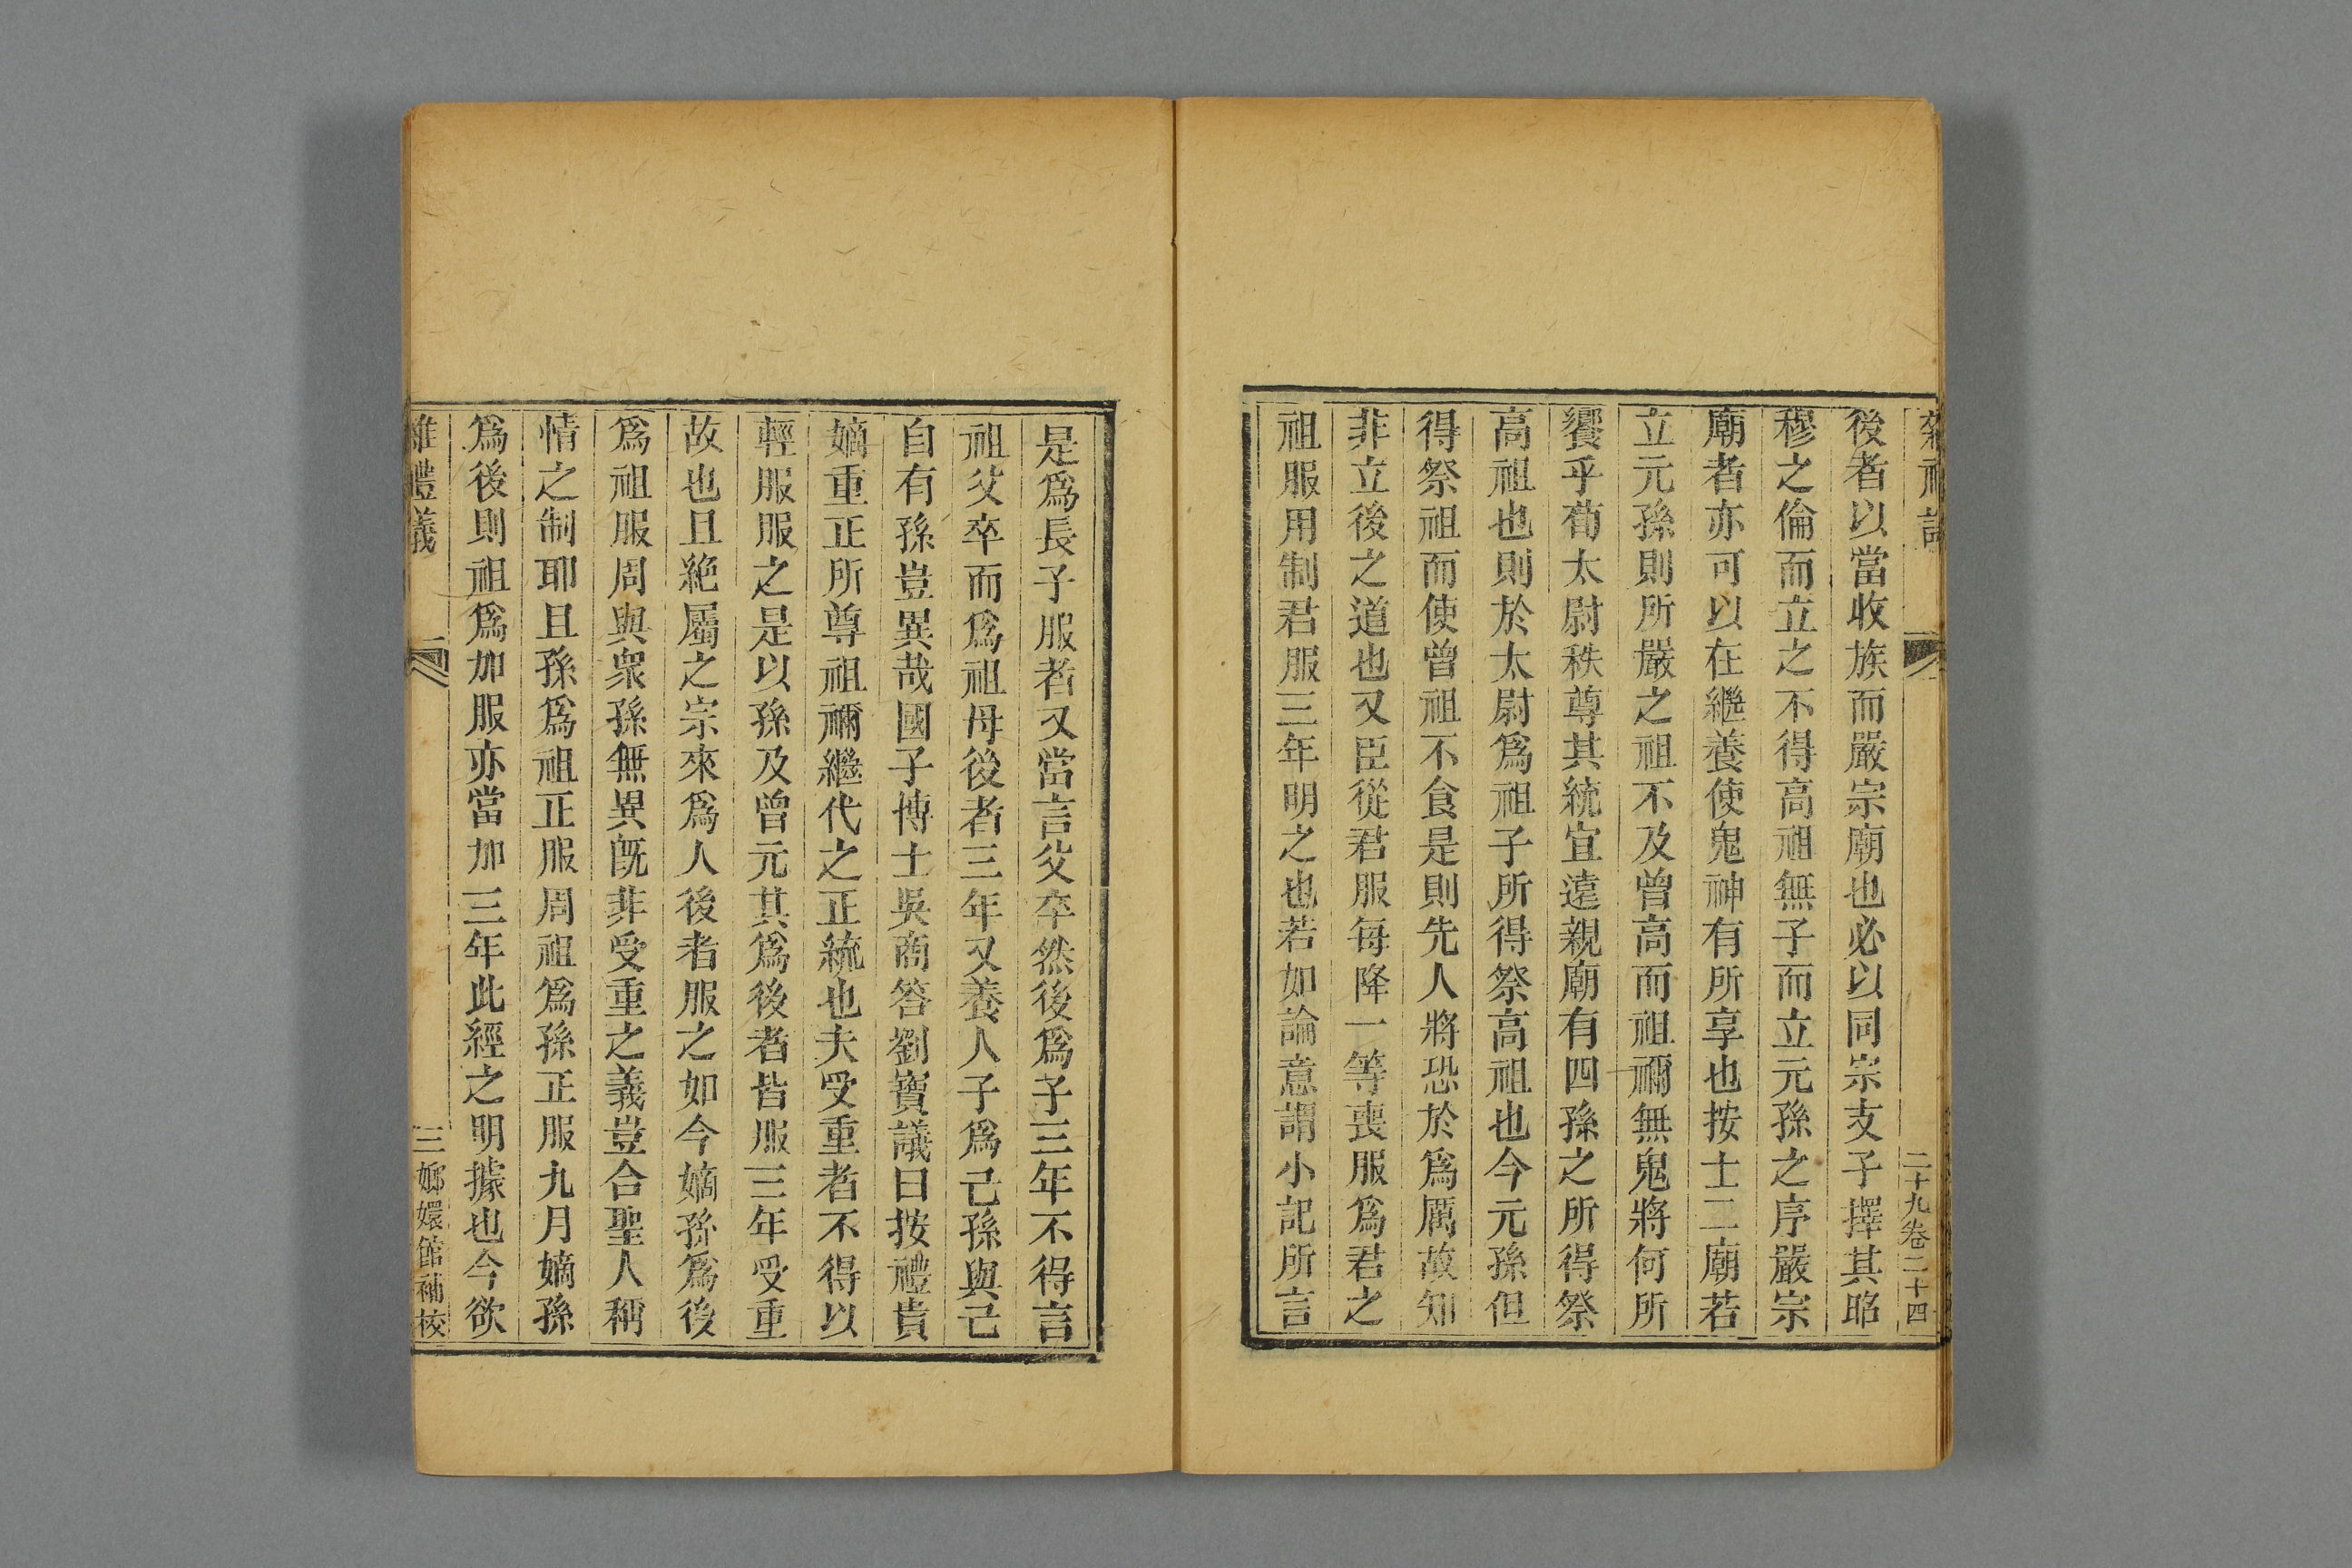 二十九卷二十四
後者以當收族而嚴宗廟也必以同宗支子擇其昭
穆之倫而立之不得高祖無子而立元孫之序嚴宗
廟者亦可以在繼養使鬼神有所享也按士二廟若
立元孫則所嚴之祖不及曾高而祖禰無鬼將何所
饗乎荀太尉秩尊其統宜遠親廟有四孫之所得祭
高祖也則於太尉爲祖子所得祭高祖也今元孫但
得祭祖而使曾祖不食是則先人將恐於爲厲故知
非立後之道也又臣從君服每降一等喪服爲君之
祖服用制君服三年明之也若如論意謂小記所言
是爲長子服者又當言父卒然後爲子三年不得言
祖父卒而爲祖母後者三年又養人子爲己孫與己
自有孫豈異哉國子博士吳商答劉寶議曰按禮貴
嫡重正所尊祖禰繼代之正統也夫受重者不得以
輕服服之是以孫及曾元其爲後者皆服三年受重
故也且絕屬之宗來爲人後者服之如今嫡孫爲後
爲祖服周與衆孫無異旣非受重之義豈合聖人稱
情之制耶且孫爲祖正服周祖爲孫正服九月嫡孫
爲後則祖爲加服亦當加三年此經之明據也今欲
禮義
三嫏嬛館補校